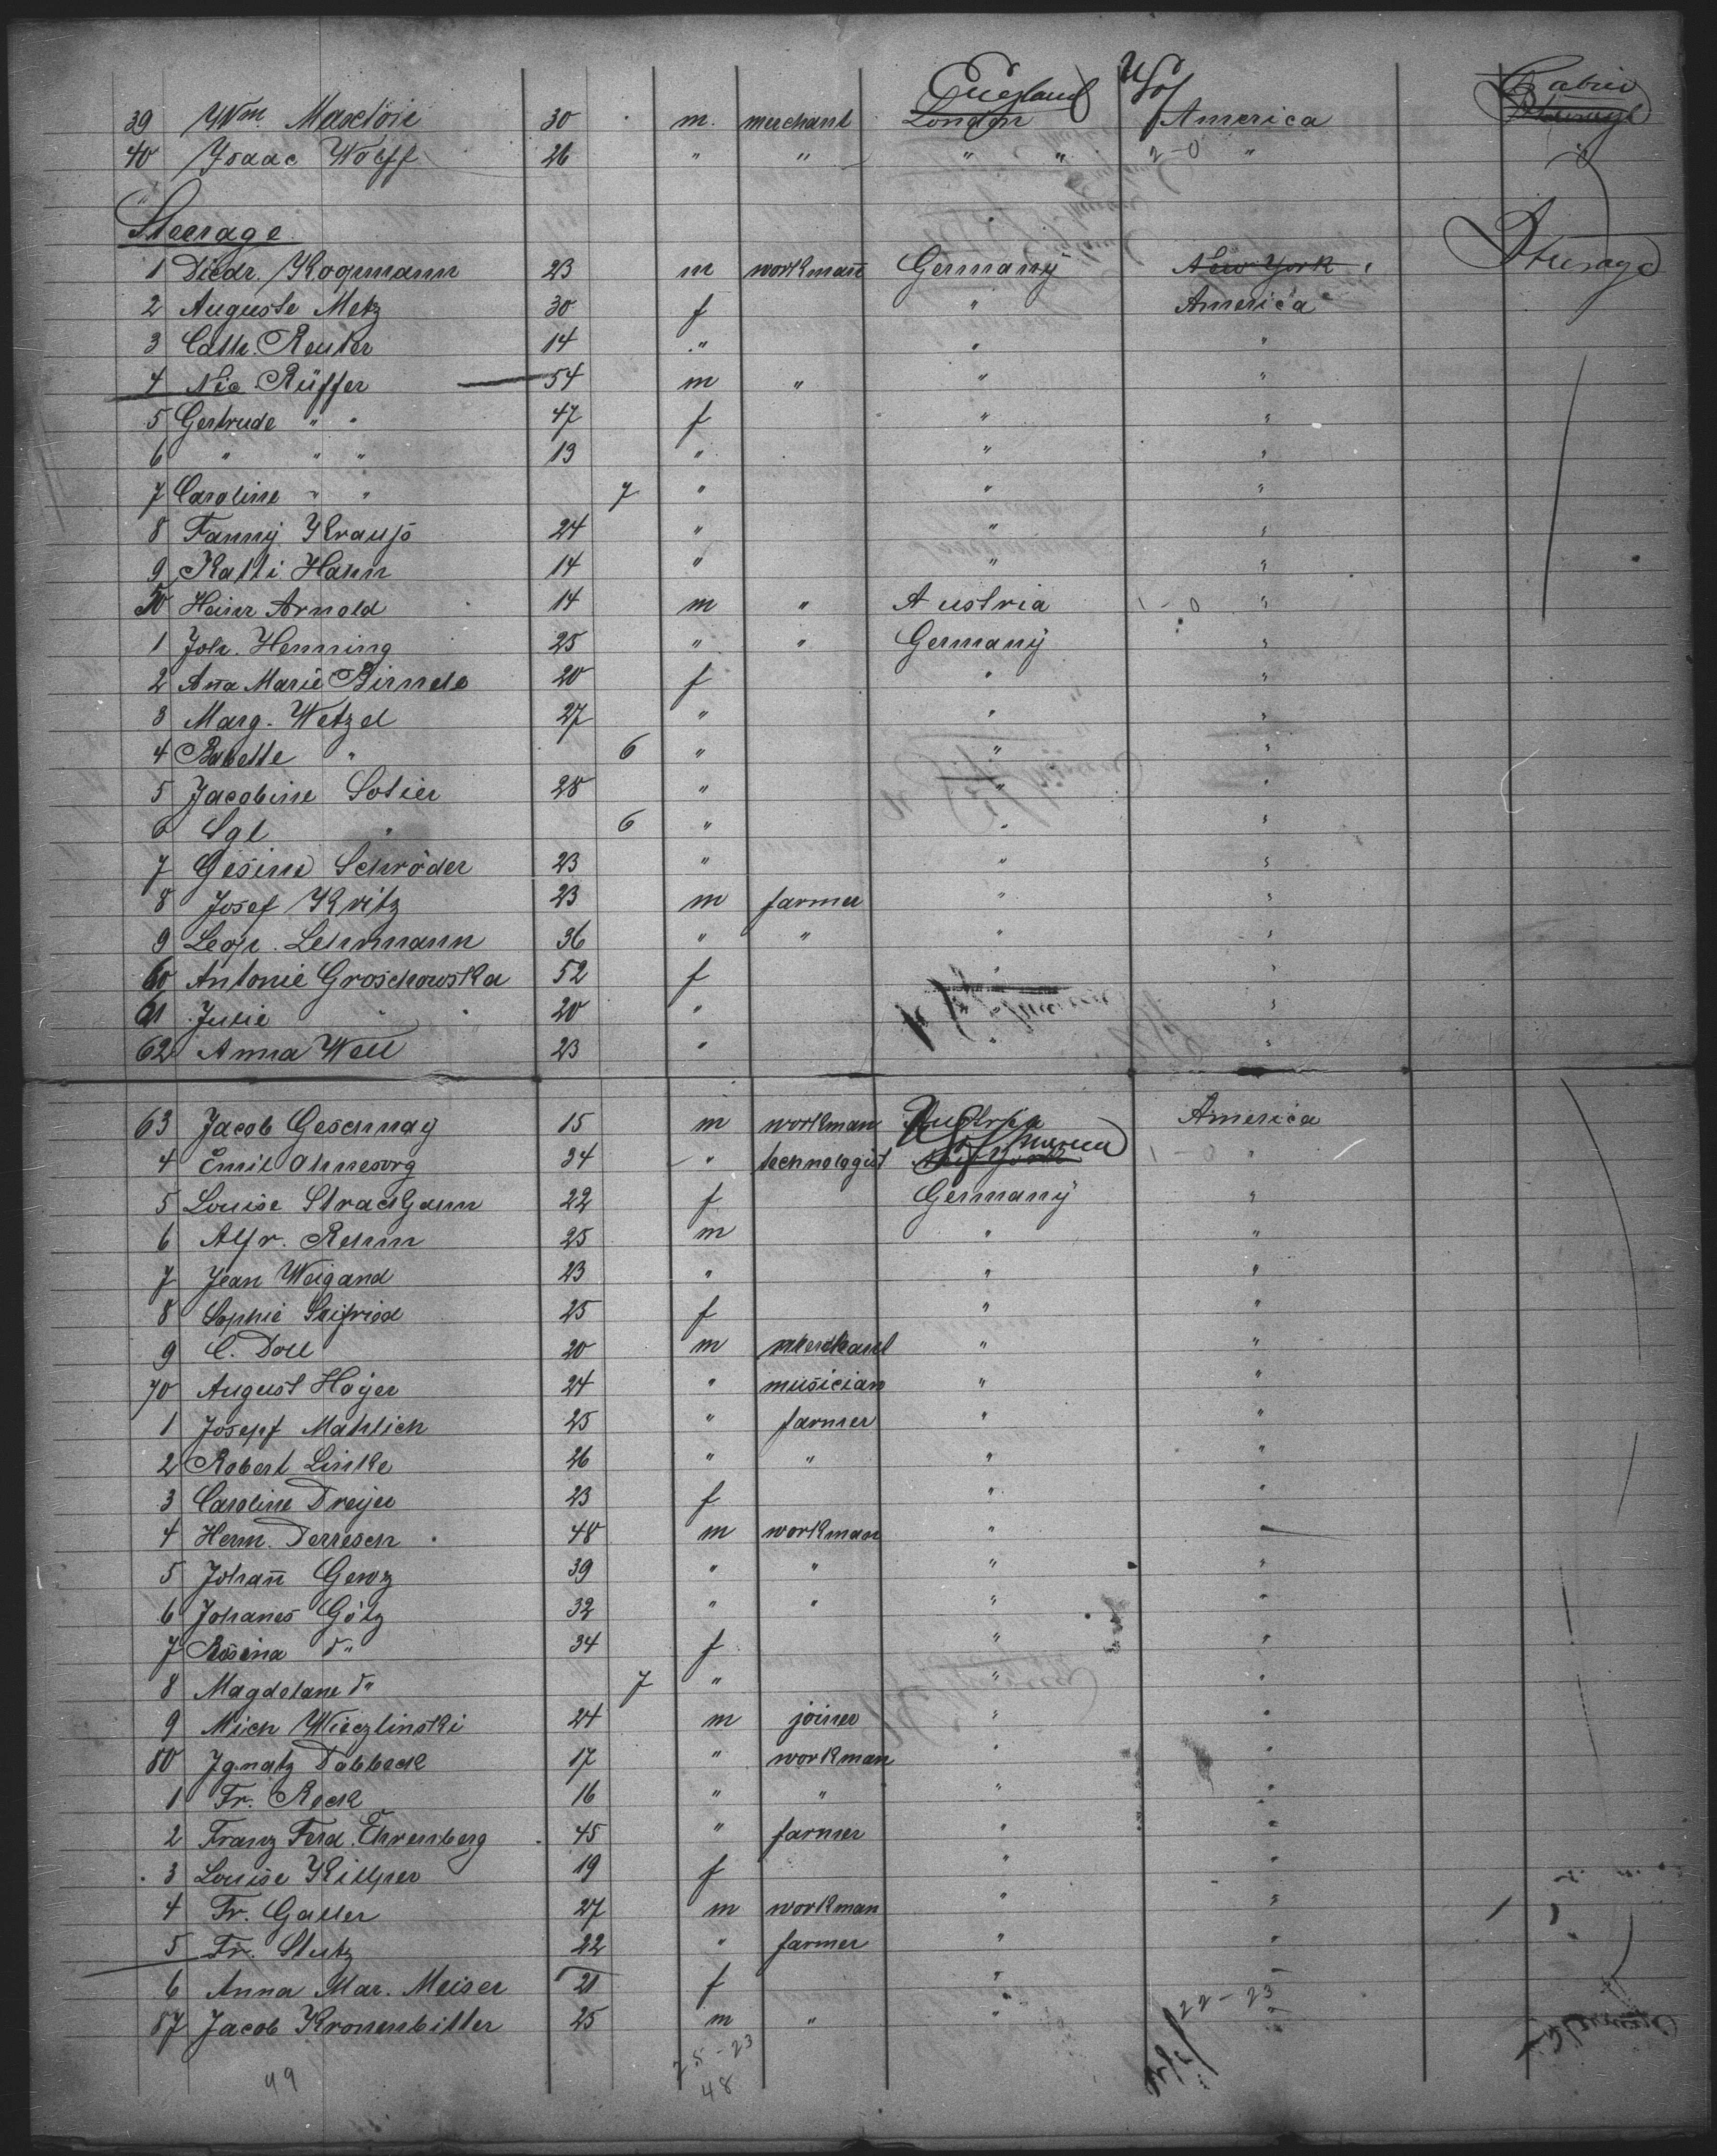 England U S of Cabin
39 Wm. 30 m. merchant London America Steerage
40 Isaac Wolff 26 " " " " 2-0 " "
Steerage
1 Diedr. Koopmann 23 m workmañ Germany New York Steerage
2 Auguste Metz 30 f " America
3 Cath. Reuter 14 " " "
4 Nic. Rüffer 54 m " " "
5 Gertrude " " 47 f " "
6 " " " 13 " " "
7 Caroline " " 7 " " "
8 Fanny Krauss 24 " " "
9 Katti Hahn 14 " " "
50 Heinr Arnold 14 m " Austria 1-0 "
1 Joh. Henning 25 " " Germany "
2 Aña Marie 20 f " "
3 Marg. Wetzel 27 " " "
4 Babette " 6 " " "
5 Jacobine Sotier 28 " " "
6 Sgl " 6 " " "
7 Gesine Schröder 23 " " "
8 Josef Kritz 23 m farmer " "
9 Leop. Lehrmann 36 " " " "
60 Antonie Groschowska 52 f " "
61 Julie " " 20 " " "
62 Anna Well 23 " " "
63 Jacob Geschnay 15 m workman Austria America
4 Emil Ohnesorg 34 " technologist New York 1-0 "
5 Louise 22 f Germany "
6 Alfr. Rehm 25 m " "
7 Jean Weigand 23 " " "
8 Sophie Seifried 25 f " "
9 C. Doll 20 m merchant " "
70 August Hoyer 24 " musician " "
1 Josepf Mahlich 25 " farmer " "
2 Robert Linke 26 " " " "
3 Caroline Dreyer 23 f " "
4 Herm. Derresch 48 m workman " "
5 Johañ Genz 39 " " " "
6 Johanes Götz 32 " " " "
7 Rosina do 34 f " "
8 Magdelane do 7 " " "
9 Mich Wieczlinski 24 m joiner " "
80 Ignatz Dobbeck 17 " workman " "
1 Fr. Rock 16 " " " "
2 Franz Ferd. Ehrenberg 45 " farmer " "
3 Louise Killper 19 f " "
4 Fr. Galler 27 m workman " "
5 Fr. Stutz 22 " farmer " "
6 Anna Mar. Meiser 21 f " "
87 Jacob Kronenbitter 25 m " " 22-23 "
25-23
49 48